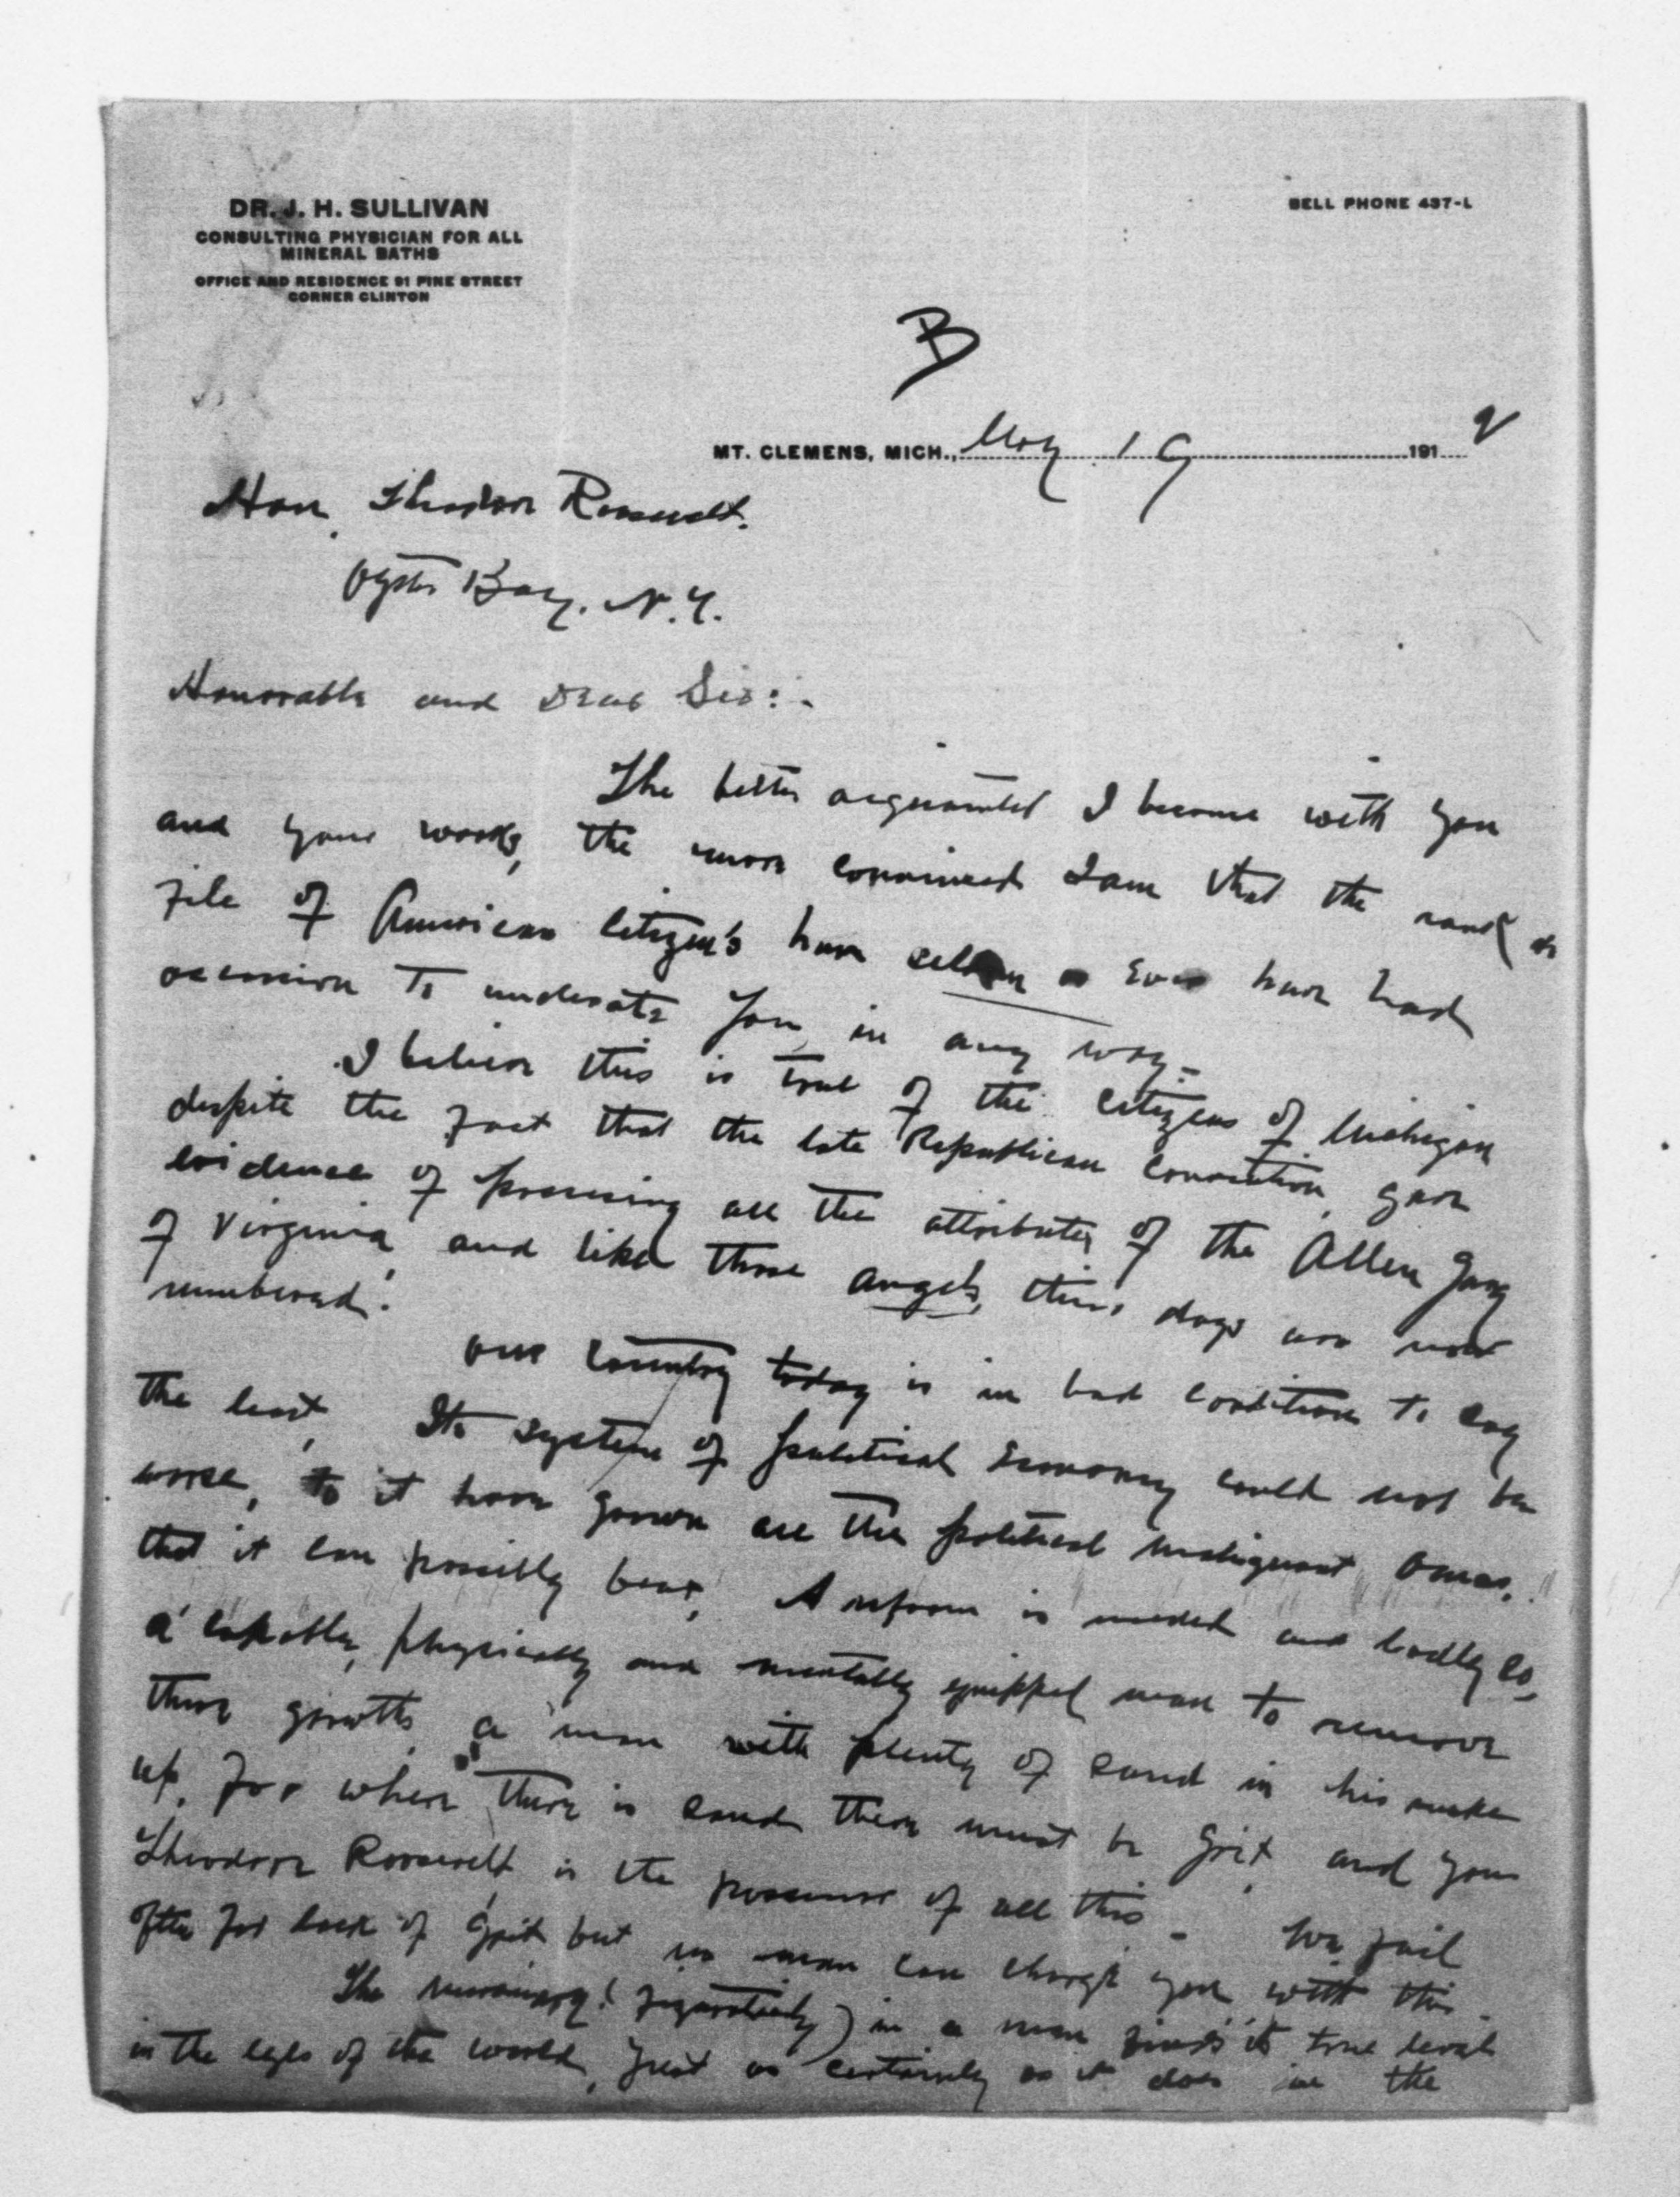 DR. J. H. SULLIVAN
CONSULTING PHYSICIAN FOR ALL
MINERAL BATHS
OFFICE AND RESIDENCE 91 PINE STREET
CORNER CLINTON
BELL PHONE 437-L
B
MT. CLEMENS, MICH., May 19 1912
Hon. Theodore Roosevelt.
Oyster Bay, N.Y.
Honorable and Dear Sir:-
The better acquainted I become with you
and your works, the more convinced I am that the rank &
file of American citizen's have seldom or ever have had
occasion to underrate you in any way-
I believe this is true of the citizens of Michigan
despite the fact that the late Republican Convention, gave
evidence of possessing all the attributes of the Allen Gang
of Virginia, and like those angels, their days are now
numbered.
Our Country today is in bad condition to say
the least. Its system of political Economy could not be
worse, to it have grown all the political malignant
that it can possibly bear, A reform is needed and badly so,
a capably, physically and mentally equipped man to remove
these growths, a man with plenty of sand in his make
up, for where there is sand there must be grit, and you
Theodore Roosevelt is the possessor of all this - We fail
often for lack of grit but no man can charge you with this.
The (figuratively) in a man finds its true level
in the eyes of the world, just as certainly as it does in the